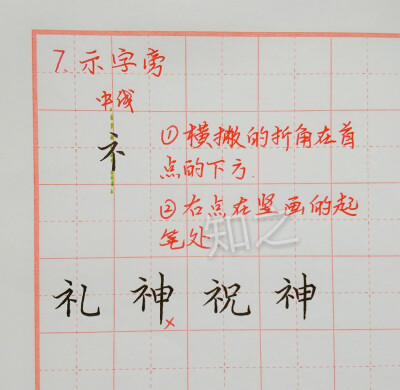 7.示字旁
中线
礻
①横撇的折角在首
点的下方.
②右点在竖画的起
笔处
知之
礼神祝神
×